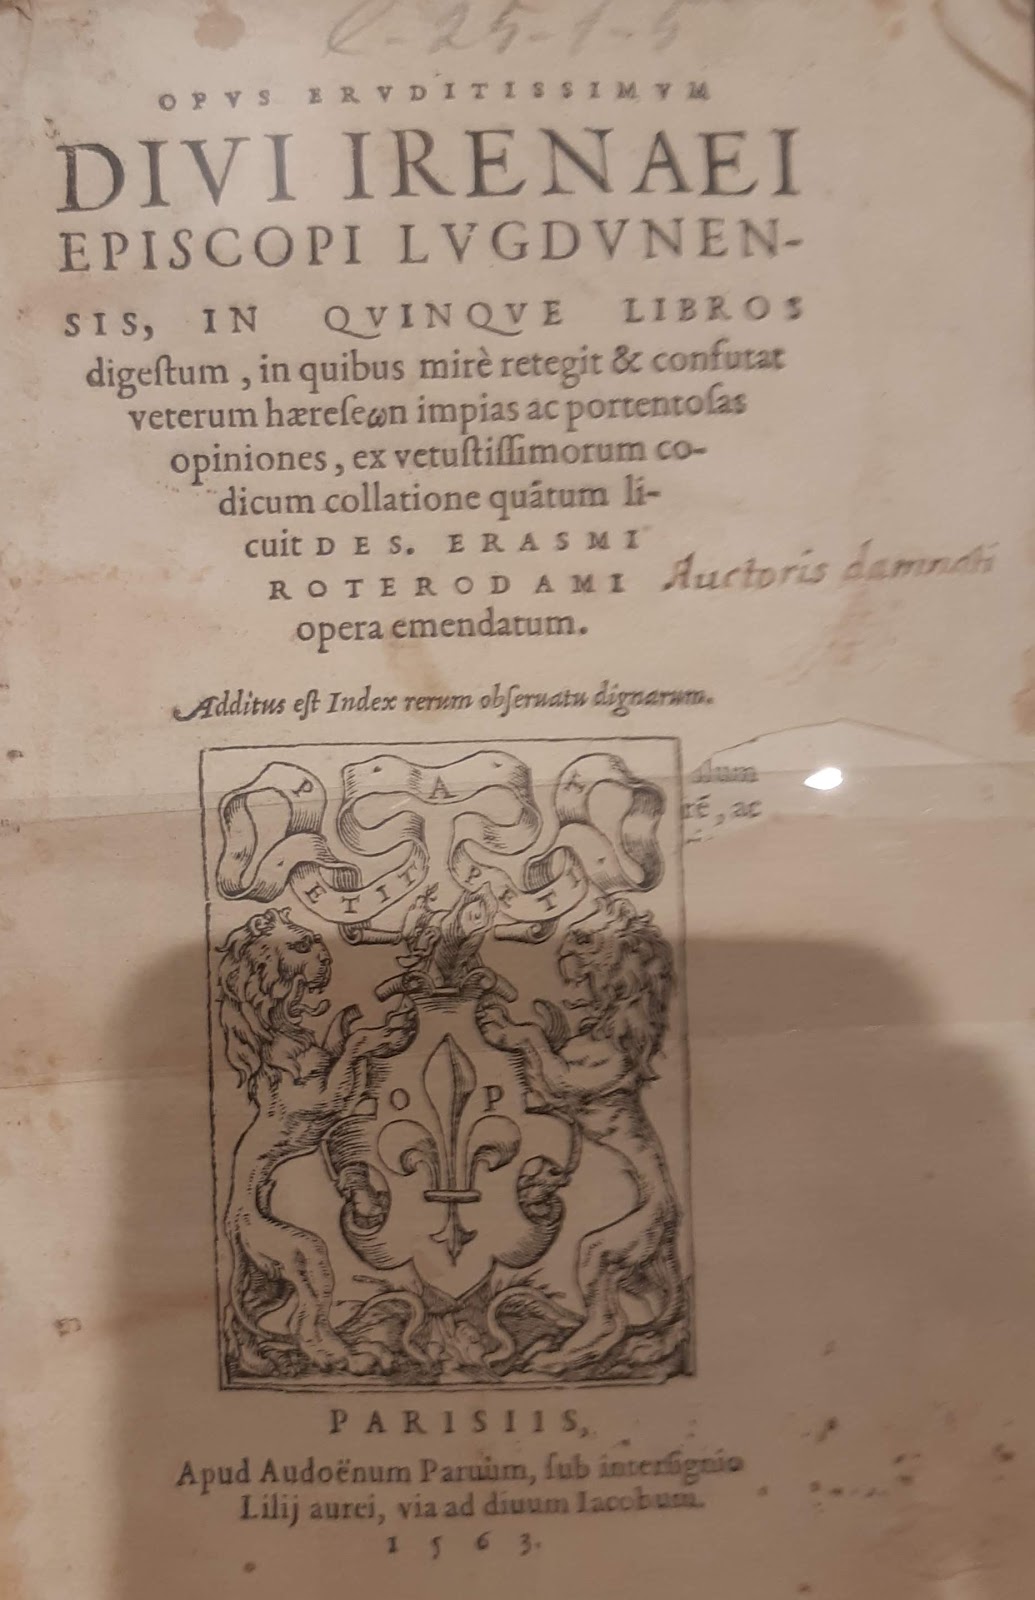 C-25-1-5
OPVS ERVDITISSIMVM
DIVI IRENAEI
EPISCOPI LVGDVNEN-
SIS, IN QVINQVE LIBROS
digeſtum, in quibus mirè retegit & confutat
veterum hæreſeωn impias ac portentoſas
opiniones, ex vetuſtiſſimorum co-
dicum collatione quãtum li-
cuit DES. ERASMI
ROTERODAMI Auctoris damnati
opera emendatum.
Additus eſt Index rerum obſeruatu dignarum.
P · A · A
ETIT PETI
ac
O P
PARISIIS,
Apud Audoënum Paruum, ſub interſignio
Lilij aurei, via ad diuum Iacobum.
1563.